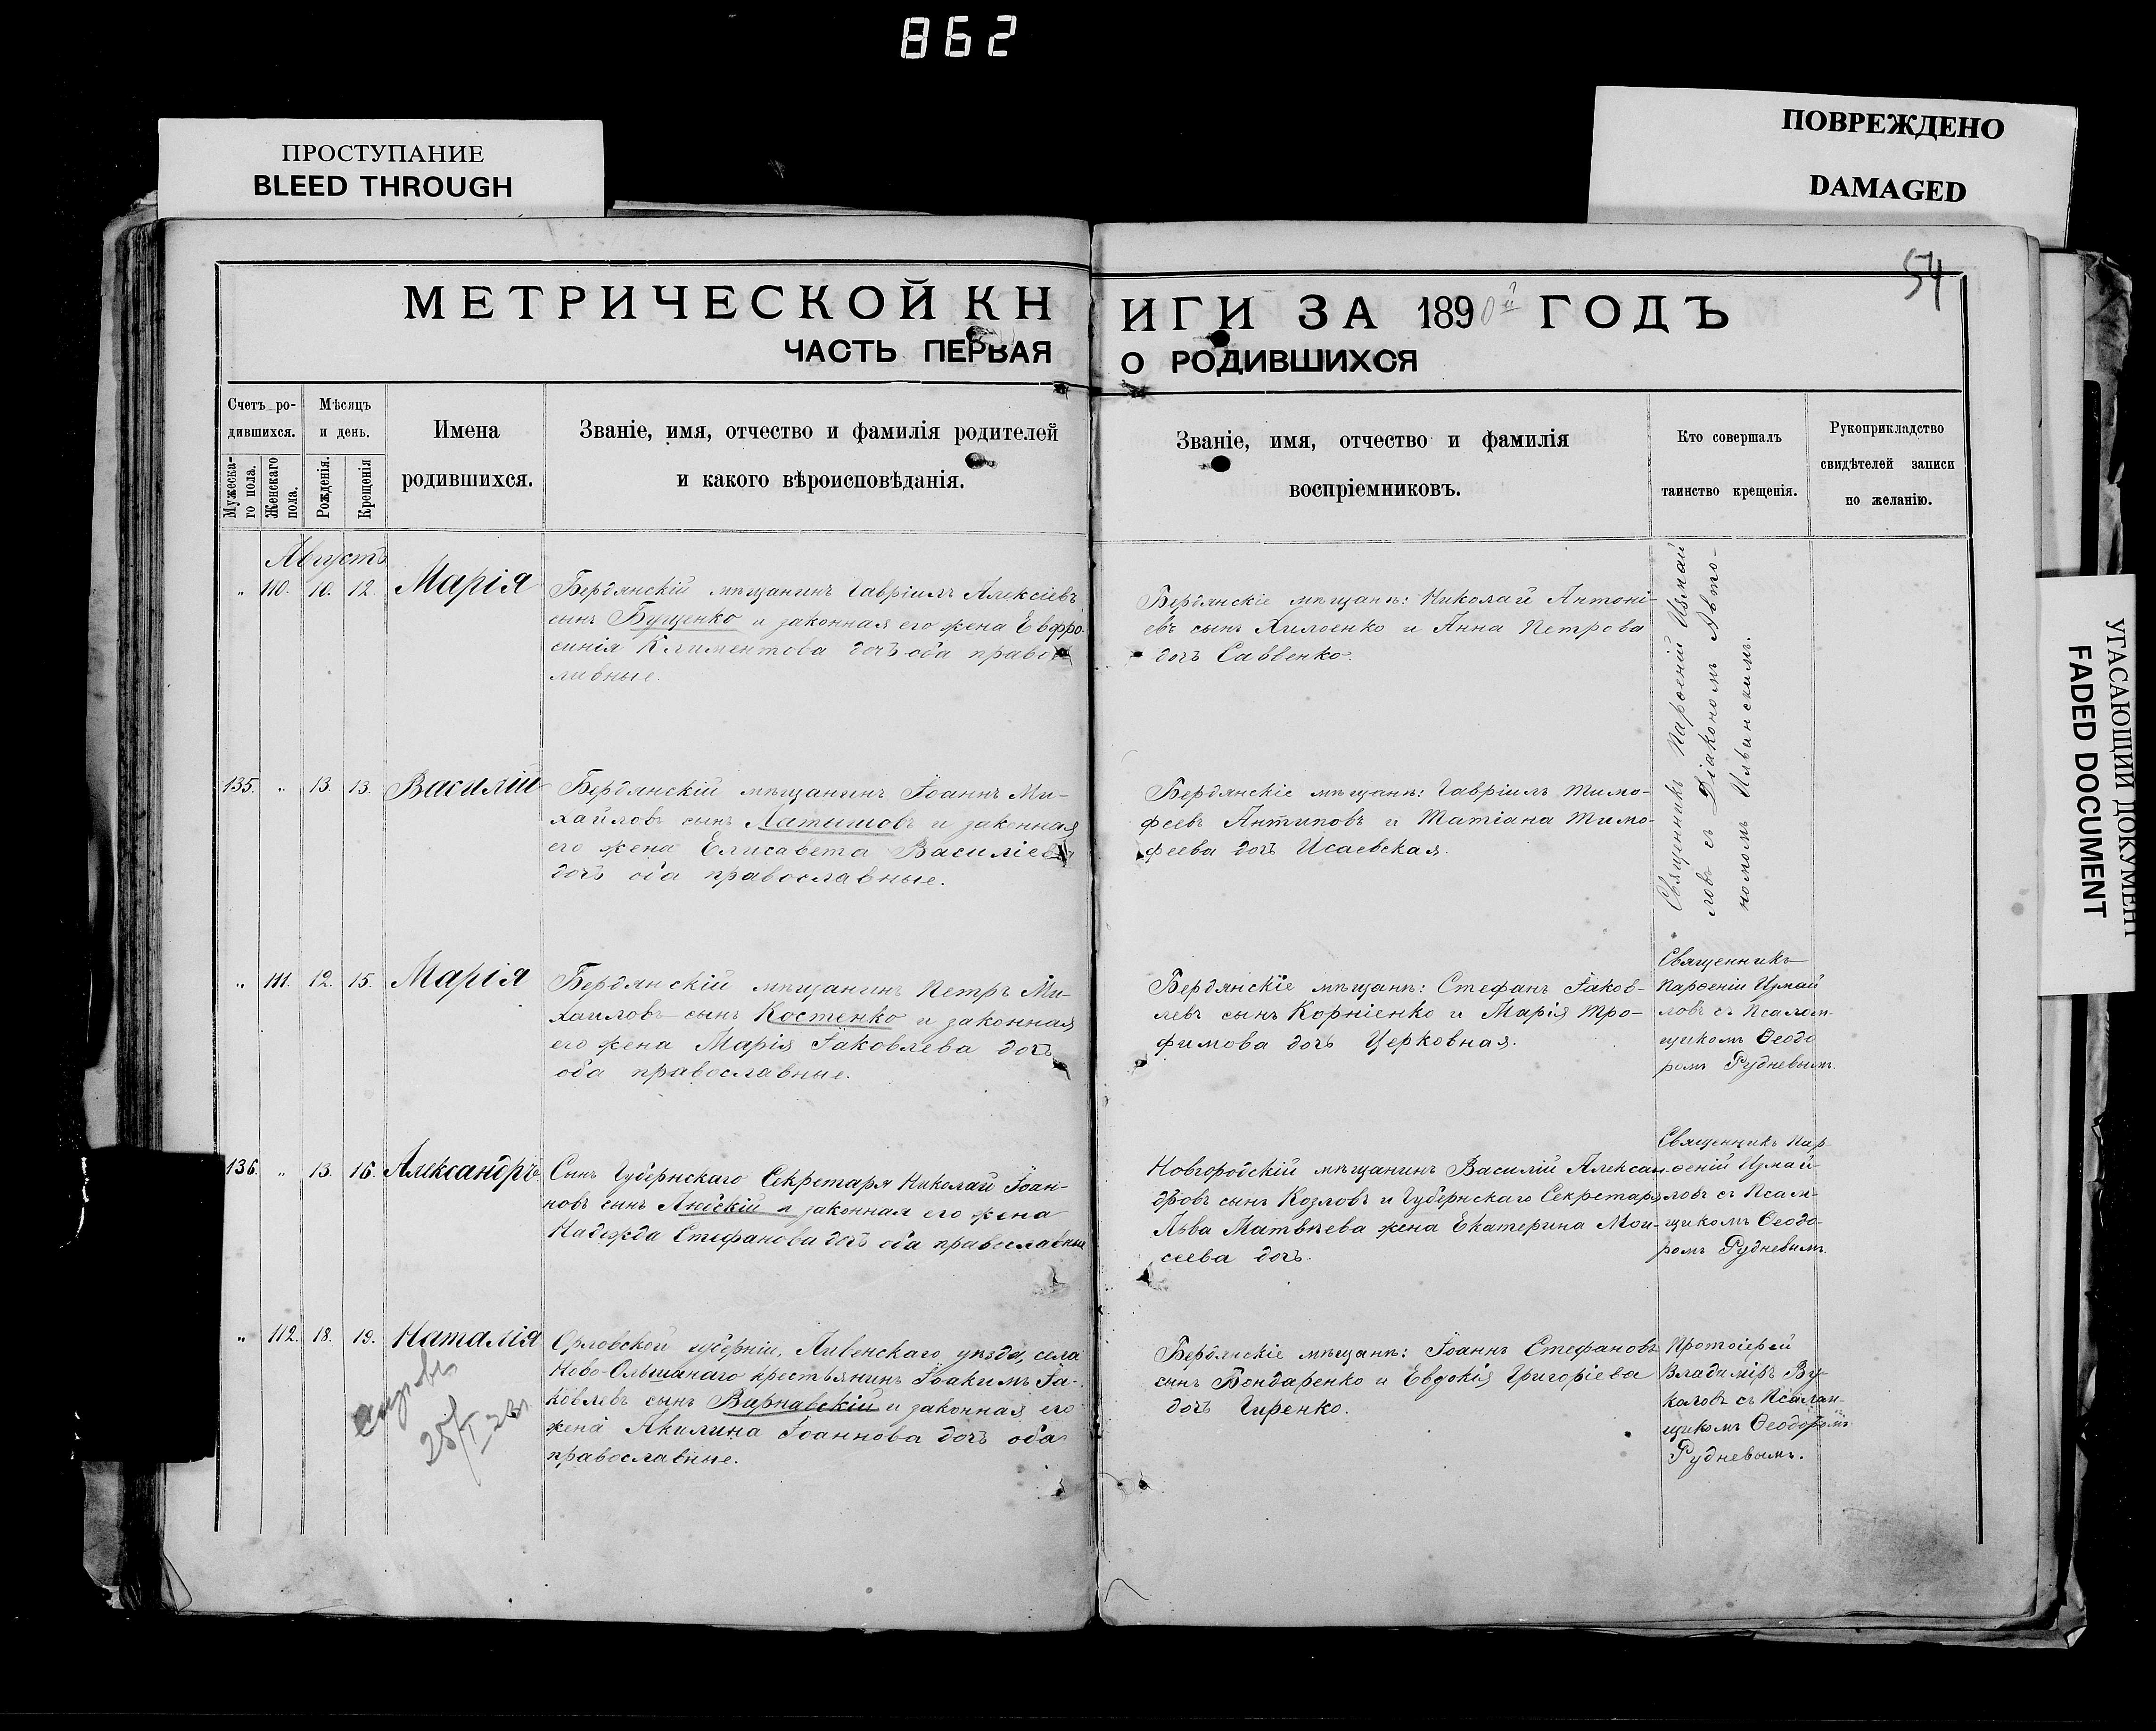 862
ПРОСТУПАНИЕ
BLEED THROUGH
ПОВРЕЖДЕНО
DAMAGED
УГАСАЮЩИЙ ДОКУМЕНТ
FADED DOCUMENT
54
МЕТРИЧЕСКОЙ КНИГИ ЗА 1890й ГОДЪ
ЧАСТЬ ПЕРВАЯ О РОДИВШИХСЯ
Счетъ ро-
дившихся.
Мужеска-
го пола.
Женскаго
пола.
Мѣсяцъ
и день.
Рожденія.
Крещенія
Имена
родившихся.
Званіе, имя, отчество и фамилія родителей
и какого вѣроисповѣданія.
Званіе, имя, отчество и фамилія
воспріемниковъ.
Кто совершалъ
таинство крещенія.
Рукоприкладство
свидѣтелей записи
по желанію.
Августъ
" 110. 10. 12. Марія
Бердянскій мѣщанинъ Гавріилъ Алексіевъ
сынъ Бущенко и законная его жена Евфро-
синія Климентова дочь оба право
лавные.
Бердянскіе мѣщане: Николай Антоні-
евъ сынъ и Анна Петрова
дочь Саввенко.
Священникъ Парѳеній Измай
ловъ съ Діакономъ Авто-
номомъ Ильинскимъ.
135. " 13. 13. Василій
Бердянскій мѣщанинъ Іоаннъ Ми-
хайловъ сынъ Латышовъ и законная
его жена Елисавета Василіева
дочь оба православные.
Бердянскіе мѣщане: Гавріилъ Тимо-
феевъ Антиповъ и Татіана Тимо-
феева дочь Исаевская.
" 111. 12. 15. Марія
Бердянскій мѣщанинъ Петръ Ми-
хаиловъ сынъ Костенко и законная
его жена Марія Іаковлева дочь
оба православные.
Бердянскіе мѣщане: Стефанъ Іаков-
левъ сынъ Корніенко и Марія Тро-
фимова дочь Церковная.
Священникъ
Парѳеній Измай
ловъ съ Псалом-
щикомъ Ѳеодо
ромъ Рудневымъ.
136. " 13. 16. Александръ
Сынъ Губернскаго Секретаря Николай Іоан-
новъ сынъ и законная его жена
Надежда Стефанова дочь оба православные
Новгородскій мѣщанинъ Василій Алексан-
дровъ сынъ Козловъ и Губернскаго Секретаря
Льва Матвѣева жена Екатерина Мои-
сеева дочь.
Священникъ Пар-
ѳеній Измай-
ловъ съ Псалом-
щикомъ Ѳеодо-
ромъ Рудневымъ.
" 112. 18. 19. Наталія
Орловской губерніи, Ливенскаго уѣзда, села
Ново-Ольшанаго крестьянинъ Іоакимъ Іа-
ковлевъ сынъ Варнавскій и законная его
жена Акилина Іоаннова дочь оба
православные.
Бердянскіе мѣщане: Іоаннъ Стефановъ
сынъ Бондаренко и Евдокія Григоріева
дочь Гиренко.
Протоіерей
Владиміръ Ву-
коловъ съ Псалом-
щикомъ Ѳеодоромъ
Рудневымъ.